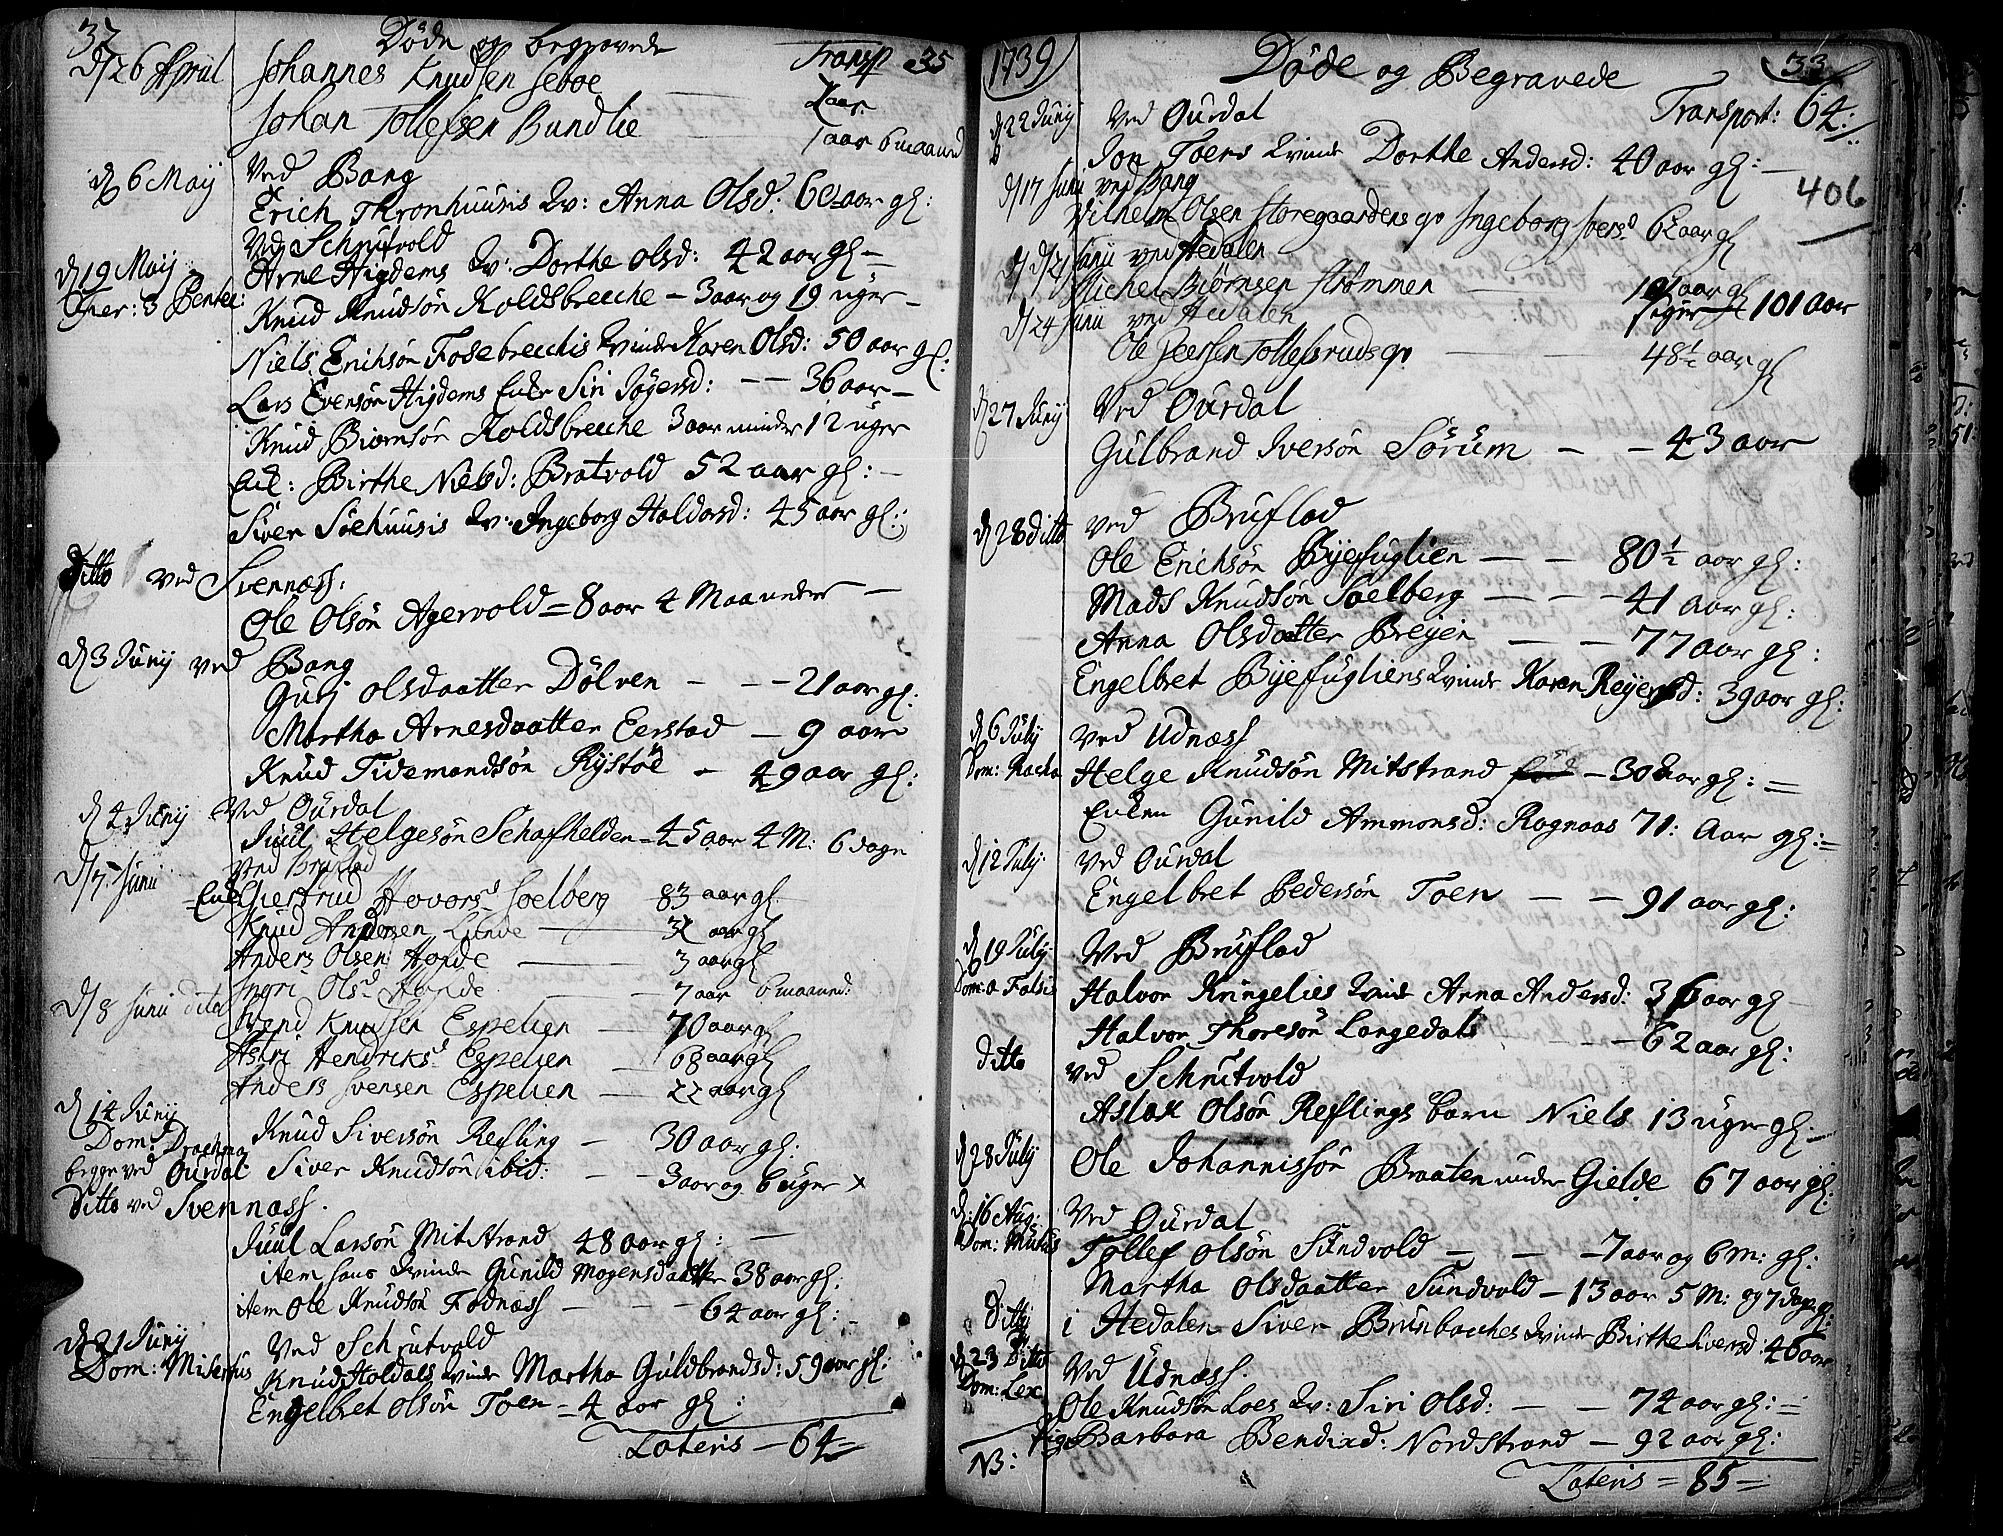 32
Døde og begravede
Transp 35
d 26 April Johannes Knudsen Seboe 2 aar
Johan Tollefsen Bundlie 1 aar 6 maaned
d 6 Maij Ved Bang
Erich Thronhuusis Qv: Anna Olsd: 60 aar gl:
Ved Schrutvold
d 19 Maij Arne Higdems Qv: Dorthe Olsd: 42 aar gl
Fier: 3 Pentec: Knud Knudsøn Koldsbrecche - 3 aar og 19 uger
Niels Erichsøn Fosebrecchis Qvinde Karen Olsd: 50 aar gl:
Lars Evensøn Higdems Enke Siri Jogersd: - - 36 aar -
Knud Biørnsøn Koldsbrecche 3 aar minder 12 uger
Enk: Birthe Nielsd: Bratvold 52 aar gl: -
Siver Søehuusis Qv: Ingeborg Haldorsd: 45 aar gl:
Ditto ved Svennæss:
Ole Olsøn Agervold = 8 aar 4 Maaneder -
d 3 Junij ved Bang
Gurj Olsdaatter Dølven - - - 21 aar gl:
Martha Arnesdaatter Eerstad - 9 aar
Knud Tidemandsøn Rystøe - 49 aar gl:
d 4 Junij Ved Ourdal
Juul Helgesøn Schafhelden - 45 aar 4 M: 6 dage
d 7 Junii Ved Bruflad
Enke Giertrud Hovors Soelberg 83 aar gl
Knud Andersen Lunde 32 aar gl
Anders Olsen Honde 3 aar gl
Ingri Olsd Honde 7 aar 6 maaned:
d 8 Junii ditto Svend Knudsen Espelien 70 aar gl
Astri Hendriksd Espelien 68 aar gl
Anders Svensen Espelien 22 aar gl
d 14 Junij Knud Siversøn Refling - 30 aar gl:
Dom: Drachma
begge ved Ourdal Siver Knudsøn ibid: - - 3 aar og 6 uger x
Ditto ved Svennæss.
Juul Larsøn Mitstrand 48 aar gl: -
item hans Qvinde Gunild Mogensdaatter 38 aar gl:
item Ole Knudsøn Fodnæss - - - 64 aar gl:
d 21 Junij Ved Schrutvold
Dom: Misertus Knud Holdals Qvinde Martha Guldbrandsd: 59 aar gl:
Engelbret Olsøn Toen - 4 aar gl:
Lateris - 64 =
1739
Døde og Begravede
33
Transport: 64:
406
d 22 Junij Ved Ourdal
Jon Toens Qvinde Dorthe Andersd: 40 aar gl: -
d 17 Junii ved Bang
Vilhelm Olsen Storegaardens qv Ingeborg Iversd 62 aar gl
d 21 Junii ved Hedalen
Michel Biørnsen Strømmen 101 aar gl
siger 101 aar
d 24 Junii ved Hedalen
Ole Peersen Tollefsruds qv 48½ aar gl
d 27 Junij Ved Ourdal
Gulbrand Iversøn Sørum - - 43 aar
d 28 Ditto Ved Bruflad
Ole Erichsøn Byefuglien - - 80½ aar gl:
Mads Knudsøn Soelberg - - - 41 aar gl:
Anna Olsdaatter Breyen - - 77 aar gl:
Engelbret Byefugliens Qvinde Karen Reyersd: 39 aar gl:
d 6 July Ved Udnæss
Dom: Racha Helge Knudsøn Mitstrand - 30 aar gl: =
Enken Gunild Ammonsd: Rognaas 71: aar gl: =
d 12 July: Ved Ourdal
Engelbret Pedersøn Toen - - 91 aar gl:
d 19 July Ved Bruflad
Dom: a Falsis Halvor Kringelies Qvinde Anna Andersd: 36 aar gl
Halvor Thoresøn Langedals - - 62 aar gl:
Ditto Ved Schrutvold
Aslak Olsøn Reflings barn Niels 13 uger gl:
d 28 July Ole Johannissøn Braaten under Gielde 67 aar gl:
d: 16 Aug: Ved Ourdal
Dom: Mutus Tollef Olsøn Sundvold - - - 7 aar og 6 m: gl:
Martha Olsdaatter Sundvold - 13 aar 5 M: og 7 dage gl:
Ditto i Hedalen Siver Brunbacches Qvinde Birthe Iversd: 46 aar
d 23 Ditto Ved Udnæss.
Dom: Lex Ole Knudsøn Loes Qv: Siri Olsd: - - 74 aar gl: =
Pige Barbara Bendixd: Nordstrand - 92 aar gl:
NB:
Lateris = 85 =